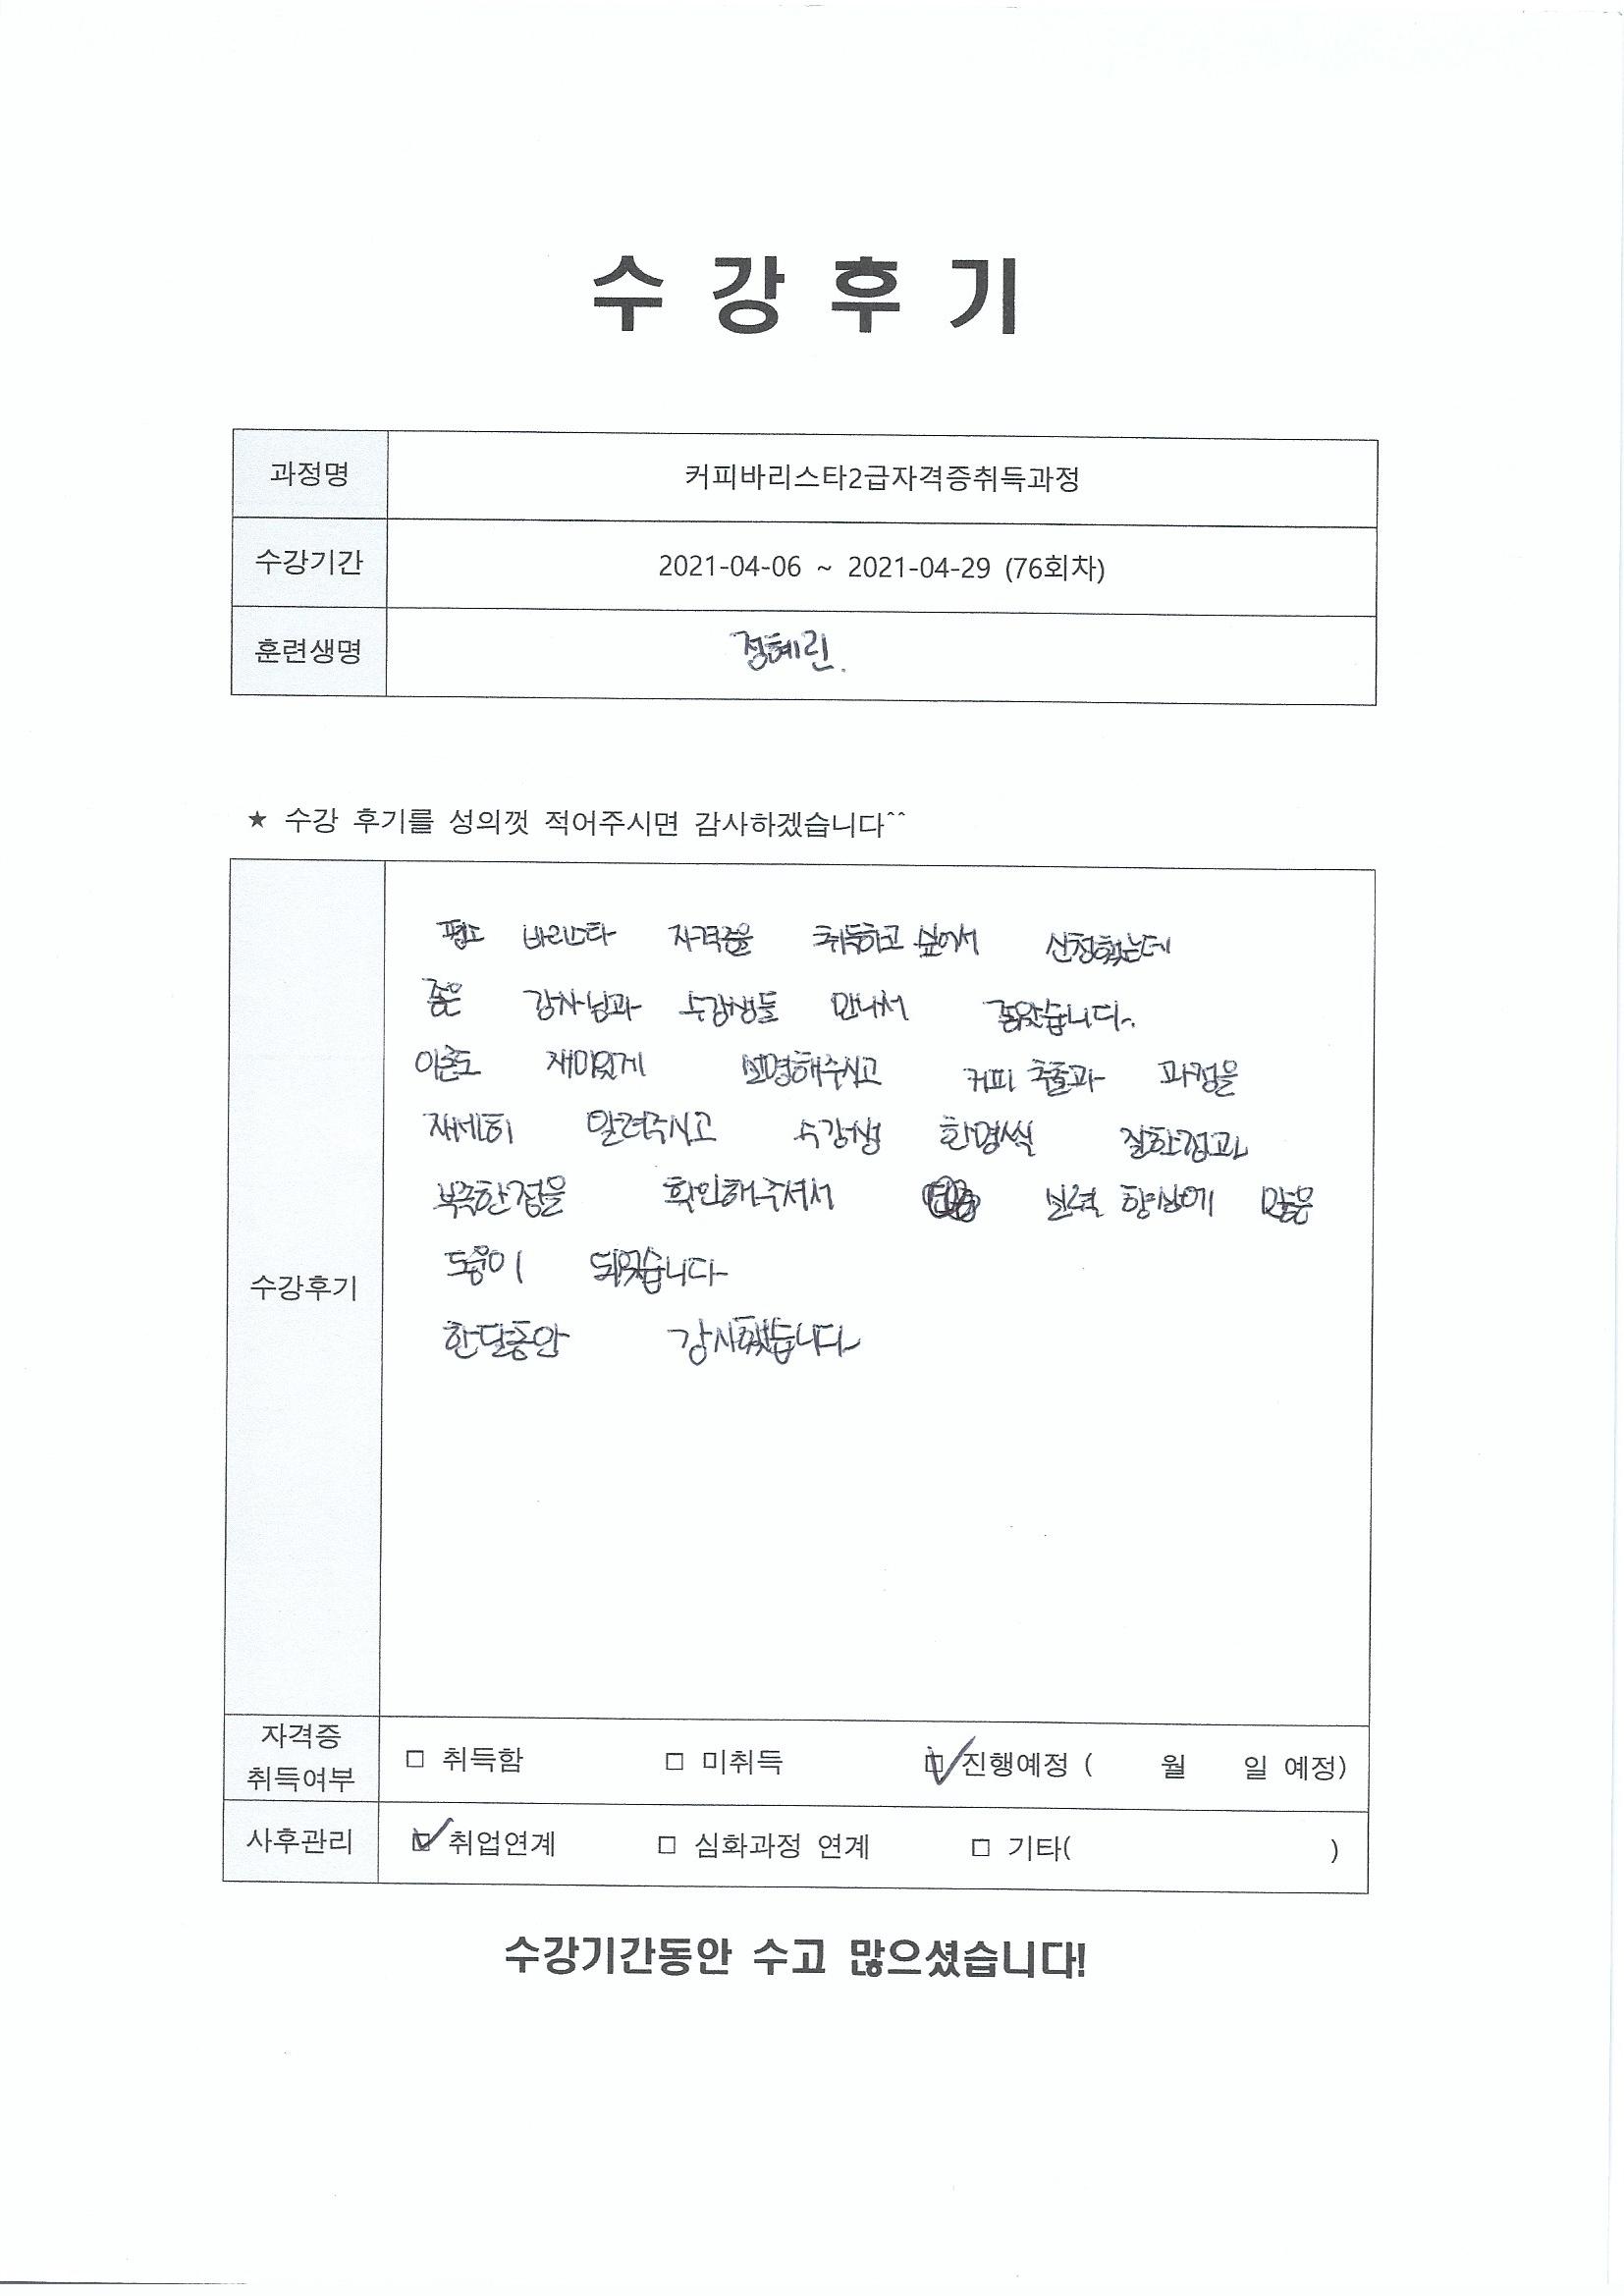 수 강 후 기
과정명 커피바리스타2급자격증취득과정
수강기간 2021-04-06 ~ 2021-04-29 (76회차)
훈련생명 정혜린.
★ 수강 후기를 성의껏 적어주시면 감사하겠습니다^^
평소 바리스타 자격증을 취득하고 싶어서 신청했는데
좋은 강사님과 수강생들 만나서 좋았습니다.
이론도 재미있게 설명해주시고 커피 추출과 과정을
자세히 알려주시고 수강생 한명씩 잘한점과
부족한점을 확인해주셔서 실력 향상에 많은
도움이 되었습니다
수강후기
한달동안 감사했습니다
자격증
취득여부 □ 취득함 □ 미취득 ☑ 진행예정 ( 월 일 예정)
사후관리 ☑ 취업연계 □ 심화과정 연계 □ 기타( )
수강기간동안 수고 많으셨습니다!